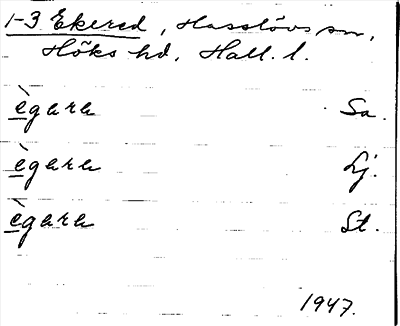 1-3 Ekered, Hasslövs sn,
Höks hd, Hall. l.
ègara Sa.
ègara Lj.
ègara St.
1947.